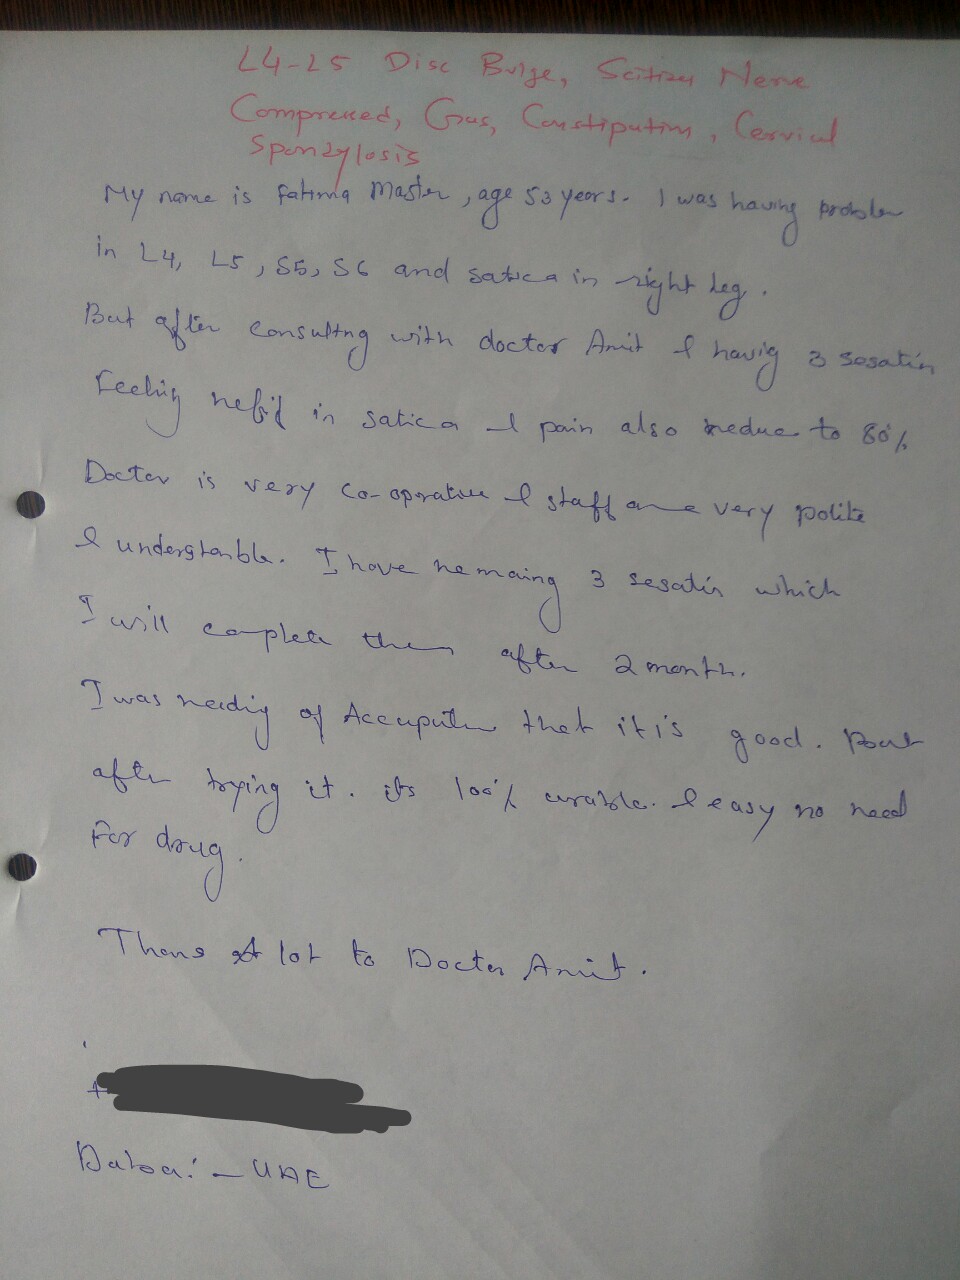 L4-L5 Disc Bulge, Scitica Nerve
Compressed, Gas, Constipation, Cervical
Spondylosis
My name is fatima Master, age 53 years. I was having problem
in L4, L5, S5, S6 and satica in right leg.
But after consultng with doctor Amit & havig 3 sesatin
Feeling relif in satica & pain also reduce to 80%
Doctor is very co-oprative & staff are very polite
& understanble. I have remaing 3 sesatin which
I will complete them after 2 month.
I was reedig of Accuputu that it is good. But
after trying it. its 100% curable. & easy no need
For drug.
Thans A lot to Doctor Amit.
Dubai:- UAE